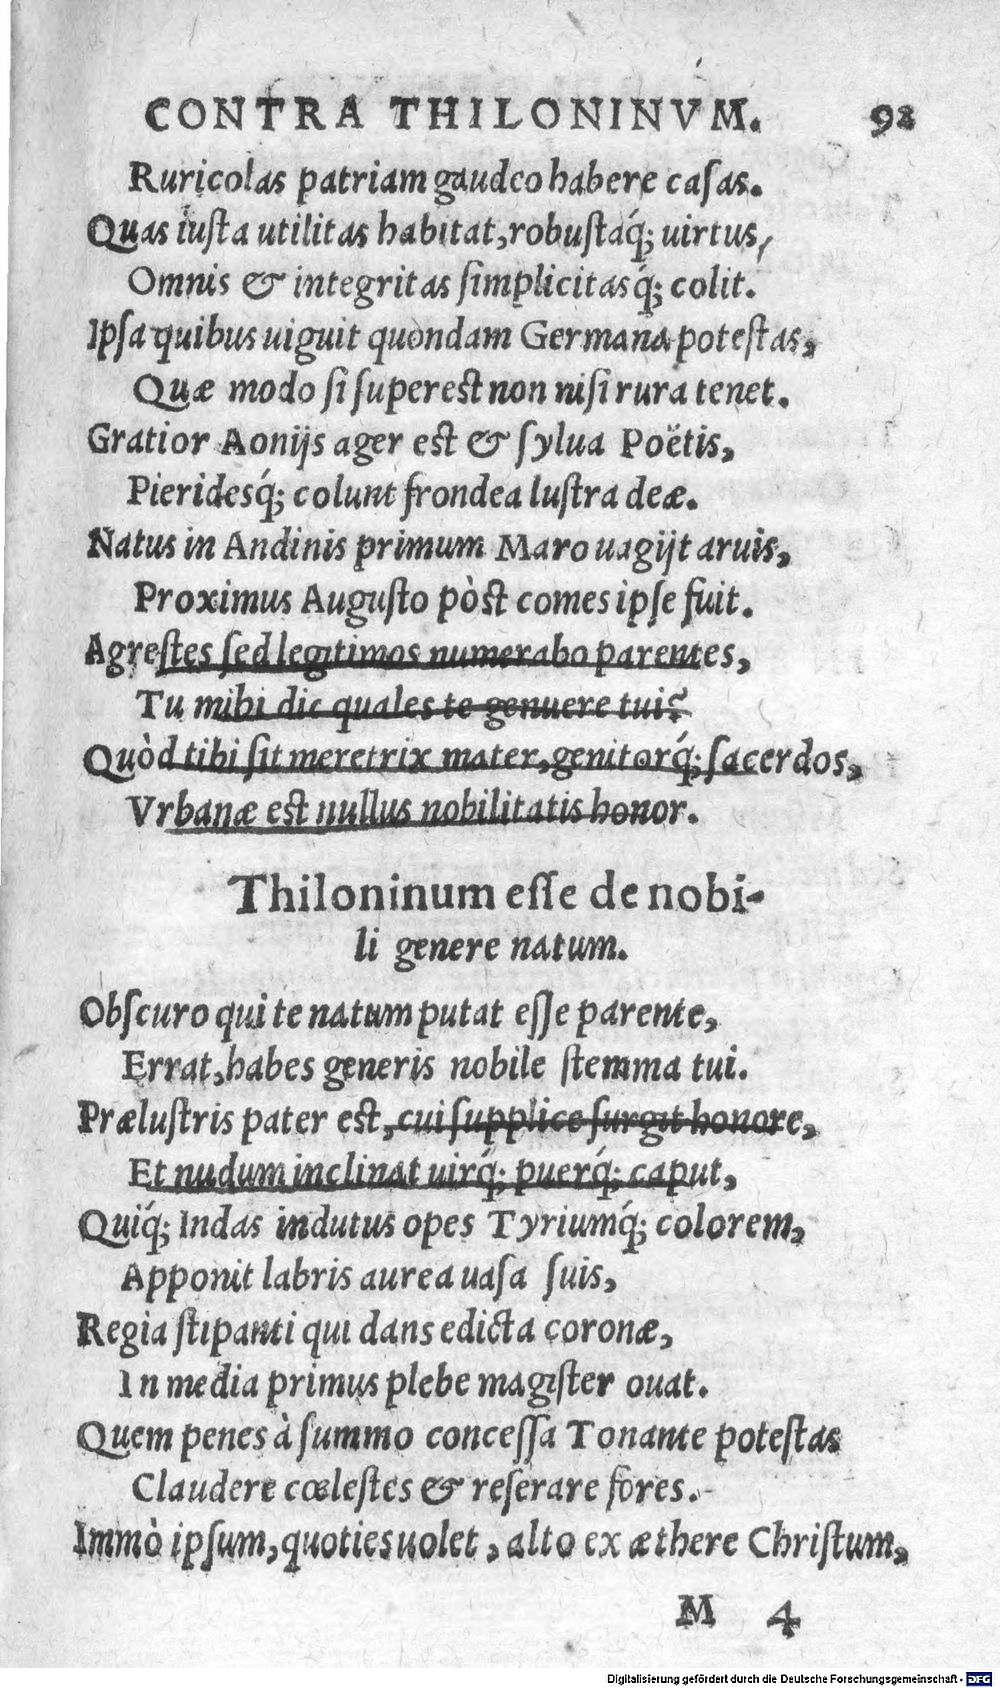 CONTRA THILONINVM. 92
Ruricolas patriam gaudeo habere caſas.
Quas iuſta utilitas habitat, robuſtaq́; uirtus,
Omnis & integritas ſimplicitasq́; colit.
Ipſa quibus uiguit quondam Germana poteſtas,
Quæ modo ſi ſupereſt non niſi rura tenet.
Gratior Aonijs ager eſt & ſylua Poëtis,
Pieridesq́; colunt frondea luſtra deæ.
Natus in Andinis primum Maro uagijt aruis,
Proximus Auguſto pòſt comes ipſe fuit.
Agreſtes ſed legitimos numerabo parentes,
Tu mihi dic quales te genuere tui?
Quòd tibi ſit meretrix mater, genitorq́; ſacerdos,
Vrbanæ eſt nullus nobilitatis honor.
Thiloninum eſſe de nobi-
li genere natum.
Obſcuro qui te natum putat eſſe parente,
Errat, habes generis nobile ſtemma tui.
Præluſtris pater eſt, cui ſupplice ſurgit honore,
Et nudum inclinat uirq́; puerq́; caput,
Quiq́; Indas indutus opes Tyriumq́; colorem,
Apponit labris aurea uaſa ſuis,
Regia ſtipanti qui dans edicta coronæ,
In media primus plebe magiſter ouat.
Quem penes à ſummo conceſſa Tonante poteſtas
Claudere cœleſtes & reſerare fores.
Immò ipſum, quoties uolet, alto ex æthere Chriſtum,
M 4
Digitalisierung gefördert durch die Deutsche Forschungsgemeinschaft - DFG